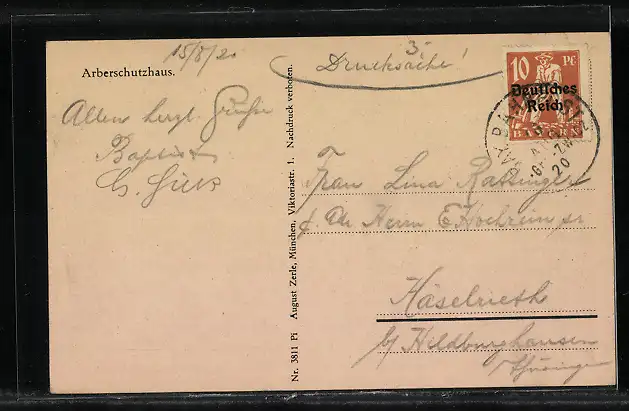 15/8/20
Drucksache!
3.
Arberschutzhaus.
Allen herzl. Grüße
10 Pf
Deutsches
Reich
BAYERN
BAYR.
20
Nr. 3811 Pi August Zerle, München, Viktoriastr. 1. Nachdruck verboten.
Frau Lina Ratzinger
Herrn E. Hochrein sr
Häselrieth
b/ Hildburghausen
Thüringen